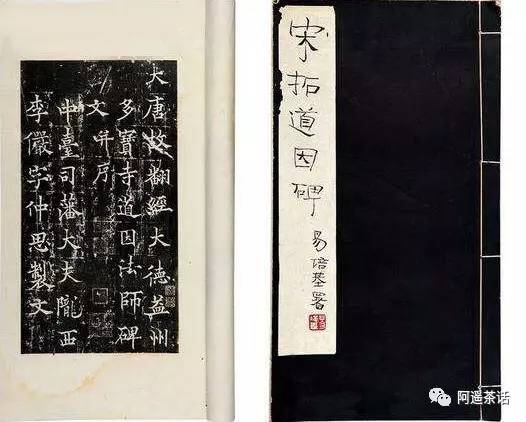 大唐故翻經大德益州
多寶寺道因法師碑
文并序
中臺司藩大夫隴西
李儼字仲思製文
宋拓道因碑
易培基署
阿遥茶话